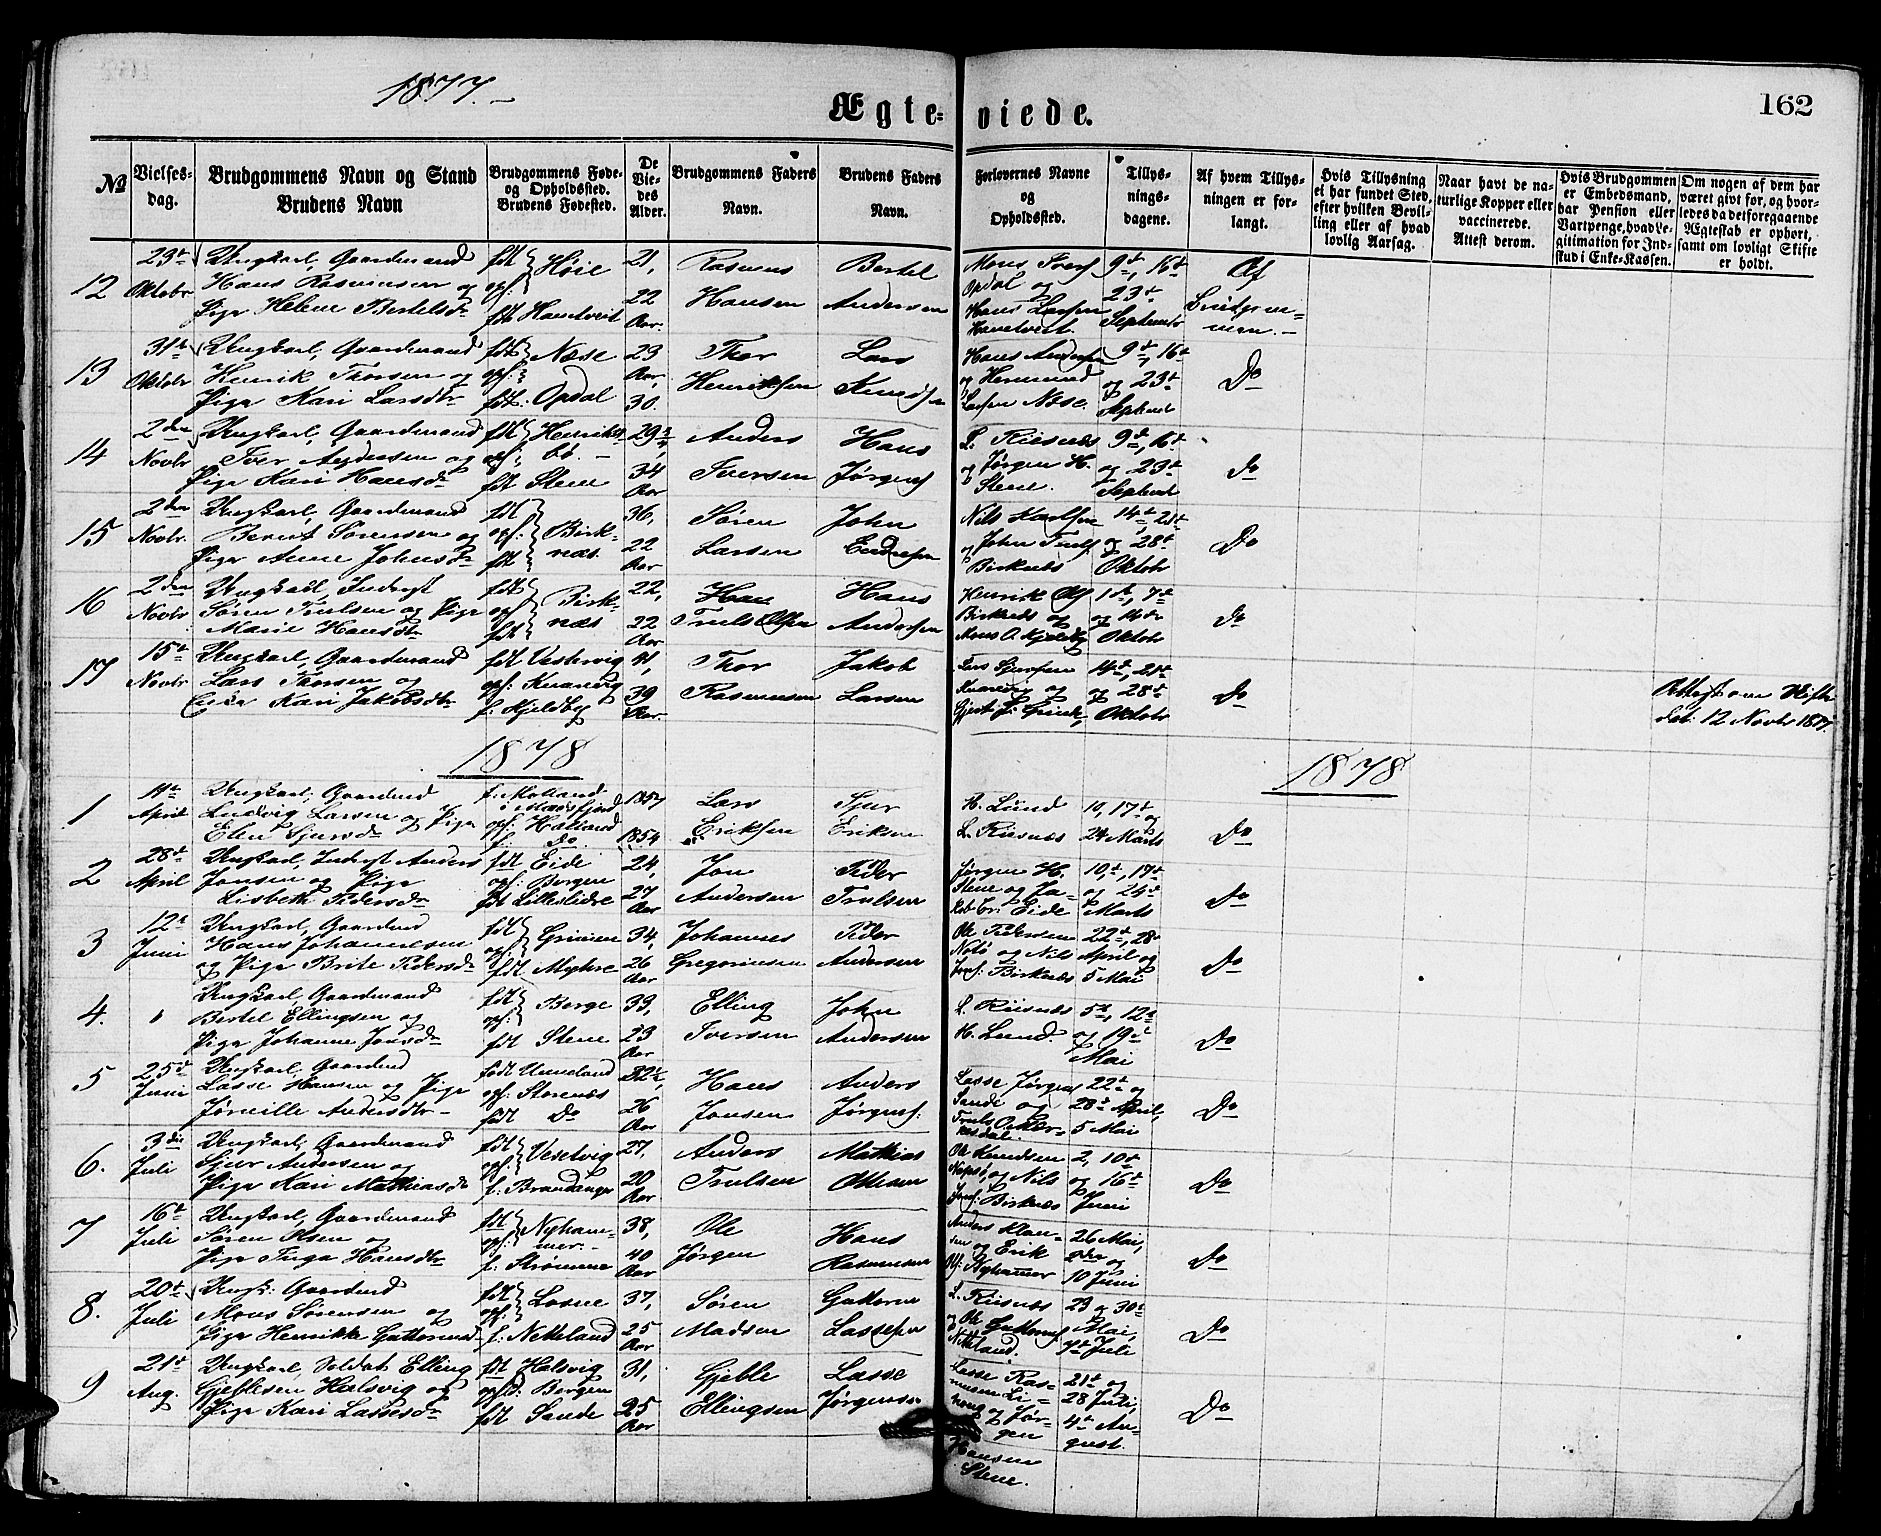 1877.
Ægte-
viede.
162
No
Vielses-
dag.
Brudgommens Navn og Stand
Brudens Navn
Brudgommens Føde-
og Opholdssted.
Brudens Fødested.
De
Vie-
des
Alder.
Brudgommens Faders
Navn.
Brudens Faders
Navn.
Forlovernes Navne
og
Opholdssted.
Tillys-
nings-
dagene.
Af hvem Tillys-
ningen er for-
langt.
Hvis Tillysning
ei har fundet Sted,
efter hvilken Bevil-
ling eller af hvad
lovlig Aarsag.
Naar havt de na-
turlige Kopper eller
vaccinerede.
Attest derom.
Hvis Brudgommen
er Embedsmand,
har Pension eller
Vartpenge, hvad Le-
gitimation for Ind-
skud i Enke-Kassen.
Om nogen af dem har
været givt før, og hvor-
ledes da det foregaaende
Ægteskab er ophørt,
samt om lovligt Skifte
er holdt.
12
29t
Oktobr
Ungkarl, Gaardmand
Hans Rasmussen og
Pige Helene Bertelsdr
fdt
opf:
Høie
fdt Hametveit
21,
22
Aar.
Rasmus
Hansen
Bertel
Andersen
Mons Ivers
Opdal og
Hans Larsen
Hametveit.
9de, 16de
23de
Septembr
Af
Brudgom-
men.
13
31te
Oktobr
Ungkarl, Gaardmand
Henrik Thorsen og
Pige Kari Larsdtr
fdt
opf:
Næse
fdt. Opdal
23
Aar,
30.
Thor
Henriksen
Lars
Knudsen
Hans Andersen
og
Larsen Næse.
9de, 16de
og 23de
Septembr
Do
14
2den
Novbr
Ungkarl, Gaardmand
Iver Andersen og
Pige Kari Hansdr
fdt Henriks-
opf: bø.
fdt Stene
29
34
Aar
Anders
Iversen
Hans
Jørgens
L. Riisnæs
og Jørgen H.
Stene.
9de, 16de
og 23de
Septembr
Do
15
2den
Novbr.
Ungkarl, Gaardmand
Bernt Sørensen og
Pige Anne Johnsdr
fdt
opf:
fdt
Birk-
næs
36,
22
Aar
Søren
Larsen
John
Endresen
Nils Karlsen
og John Truls
Birknæs
14de, 21de
og 28de
Oktobr
Do
16
2den
Novbr
Ungkarl, Inderst
Søren Trulsen og Pige
Marie Hansdtr
fdt
opf
fdt
Birk-
næs
22,
22
Aar
Truls Olsen
Hans
Andersen
Henrik Ols
Birknæs og
Mons O. Kjeldby
1ste, 7de
og 14de
Oktobr
Do
17
15de
Novbr
Ungkarl, Gaardmand
Lars Thorsen og
Enke Kari Jakobsdtr
fdt Vestervig
opf: Knarvig
f. Kjeldby
41,
39
Aar.
Thor
Rasmussen
Jakob
Larsen
Knarvig og
14de, 21de
og 28de
Oktobr
Do
Attest om Skifte
dat: 12 Novbr 1877.
1878
1878
1
11te
April
Ungkarl, Gaardmd
Ludvig Larsen og Pige
Elen Sjursdr
f. Molland
i Masfjord
opf: Halland
f. Do
1857
1854
Lars
Eriksen
Sjur
Eriksen
H. Lund
L. Riisnæs
10, 17de og
24 Marts
Do
2
28de
April
Ungkarl, Inderst Anders
Jonsen og Pige
Lisbeth Pedersdr
fdt Eide
opf: Bergen
fdt Lilleslidre
24,
27
Aar
Jon
Andersen
Peder
Trulsen
Jørgen H.
Stene og Ja-
kob Eide
10de, 17de
og 24de
Marts
Do
3
12te
Juni
Ungkarl, Gaardmd
Hans Johannesen
og Pige Brite Pedersdr
fdt
opf
Grimen
fdt Myhre
34,
26
Aar
Johannes
Gregoriusen
Peder
Andersen
Ole Pedersen
Notø og Nils
Birknæs
22de, 28de
April og
5 Mai
Do
4.
Ungkarl, Gaardmand
Bertel Ellingsen og
Pige Johanne Jonsdr
fdt
opf:
Berge
fdt Stene
33,
23
Aar
Elling
Iversen
John
Andersen
L. Riisnæs
H. Lund.
5te, 12te
og 19de
Mai
Do
5
25de
Juni
Ungkarl, Gaardmd
Lasse Hansen og Pige
Andersdtr
født Unneland
opf: Storenæs
fdt Do
26
Aar
Hans
Jonsen
Anders
Jørgens.
Lasse Jørgens
Sande og
Truls
22de og
28de April,
5 Mai
Do
6.
3die
Juli
Ungkarl, Gaardmand
Sjur Andersen og
Pige Kari Mathiasdr
fdt
opf:
Vesetvig
f. Brandanger
27,
20
Aar
Anders
Trulsen
Mathias
Ottesen
Ole Knudsen
og Nils
Birknæs
2, 10de
og 16de
Juni
Do
7
16de
Juli
Ungkarl, Gaardmand
Søren Olsen og
Pige Inga Hansdtr
fdt
opf:
Nyham-
mer.
f: Strømme
38,
40
Aar
Ole
Jørgen
Hans
Rasmussen
Anders Klau-
sen og Erik
Nyhammer
26 Mai,
2den og
10 Juni
Do
8.
20de
Juli
Ungk: Gaardmd
Mons Sørensen og
Pige Henrikke Guttormsd
fdt
opf:
Losne
f. Netteland
37,
25
Aar
Søren
Madsen
Guttorm
Lassesen
L. Riisnæs
og Ole Guttorms
Netteland.
23 og 30te
Mai,
7de Juli
Do
9
21de
Aug.
Ungkarl, Soldat Elling
Gjeblesen Halsvig og
Pige Kari Lassesdr
fdt Halsvig
opf: Bergen
fdt Sande
31,
25
Aar
Gjeble
Ellingsen
Lasse
Jørgensen
Lasse Ras-
mussen
og Jør-
gen
Hansen
Stene.
21de og
28 Juli,
4de Au-
gust.
Do